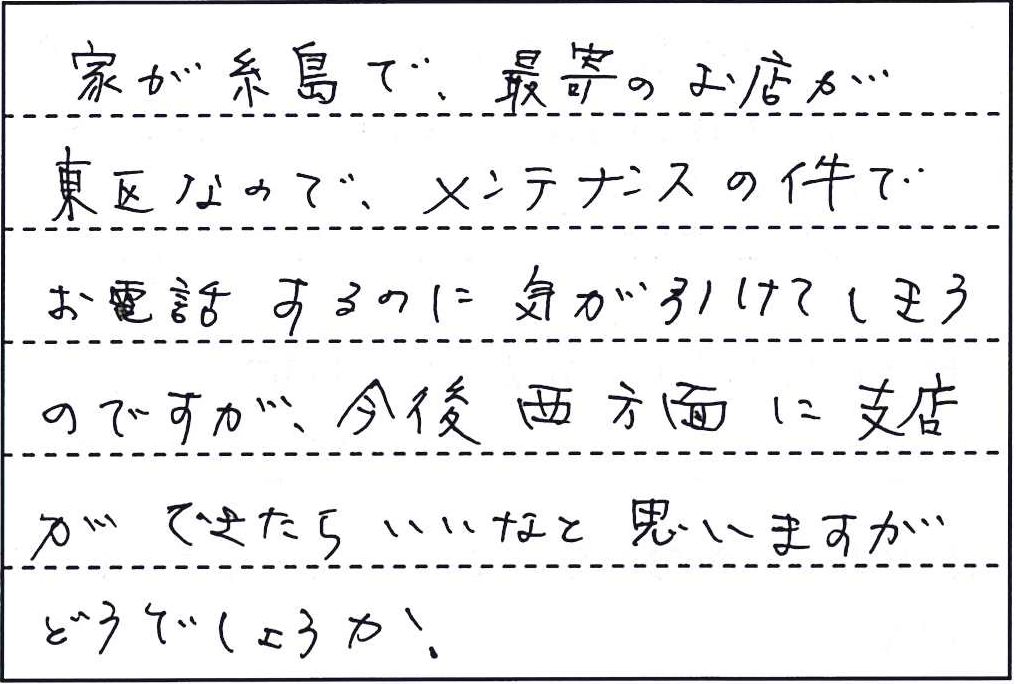 家が糸島で、最寄のお店が
東区なので、メンテナンスの件で
お電話するのに気が引けてしまう
のですが、今後西方面に支店
ができたらいいなと思いますが
どうでしょうか。